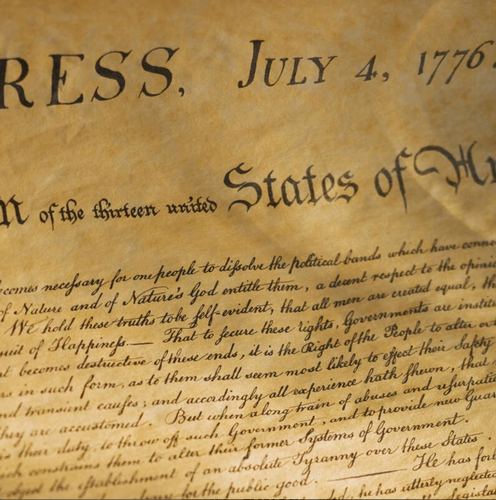 RESS, JULY 4, 1776.
of the thirteen united States of
comes necessary for one people to dissolve the political bands which have conne
of Nature and of Nature's God entitle them, a decent respect to the opinio
We hold these truths to be self-evident, that all men are created equal, th
uit of Happiness.— That to secure these rights, Governments are instit
t becomes destructive of these ends, it is the Right of the People to alter or
rs in such form, as to them shall seem most likely to effect their Safety
nd transient causes; and accordingly all experience hath shewn, that
hey are accustomed. But when a long train of abuses and usurpatio
is their duty, to throw off such Government, and to provide new Guar
ch constrains them to alter their former Systems of Government.
object the establishment of an absolute Tyranny over these States.
for the public good. He has for
he has utterly neglected